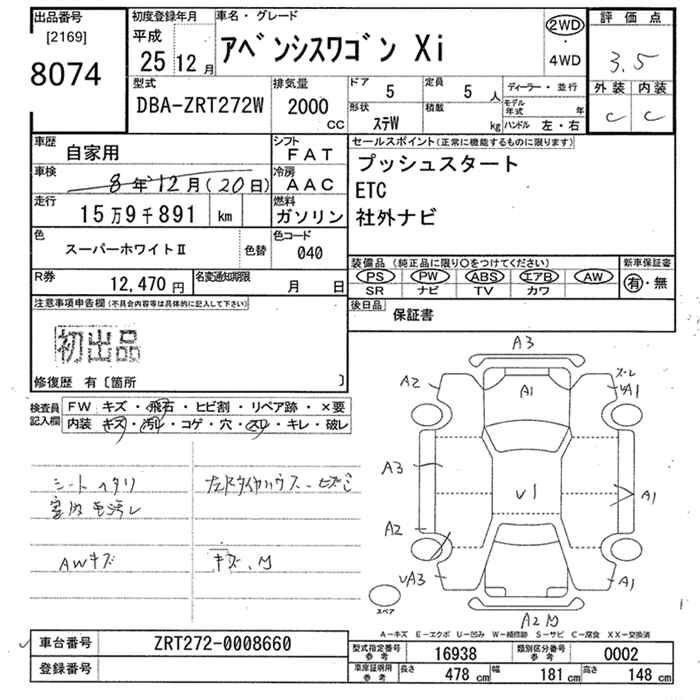 出品番号 初度登録年月 車名・グレード 評価点
[2169] 平成 アベンシスワゴン Xi 2WD
8074 25 12月 ・ 4WD 3.5
型式 排気量 ドア 5 定員 5人 ディーラー・並行 外装 内装
DBA-ZRT272W 2000 cc 形状 ステW 積載 kg モデル年式 年 C C
ハンドル 左・右
車歴 自家用 シフト FAT セールスポイント(正常に機能するものに限ります)
車検 8年12月(20日) 冷房 AAC プッシュスタート
走行 15万9千891 km 燃料 ガソリン ETC
社外ナビ
色 スーパーホワイトⅡ 色替 色コード 040
装備品(純正品に限り○をつけてください) 新車保証書
R券 12,470円 名変通知期限 月 日 PS PW ABS エアB AW 有・無
SR ナビ TV カワ
注意事項申告欄(不具合内容等は具体的に記入して下さい) 後日品 保証書
初出品
修復歴 有〔箇所 〕
検査員記入欄 FW キズ・飛石・ヒビ割・リペア跡・×要
内装 キズ・汚れ・コゲ・穴・スレ・キレ・破レ
A3
A2 A1 スレ UA1
シートヘタリ
A3 U1 A1
A2
AWキズ キズ、M
UA3 A1
スペア
A2 M
A-キズ E-エクボ U-凹み W-補修跡 S-サビ C-腐食 XX-交換済
車台番号 ZRT272-0008660 型式指定番号 参考 16938 類別区分番号 参考 0002
登録番号 車庫証明用 参考 長さ 478cm 幅 181cm 高さ 148cm